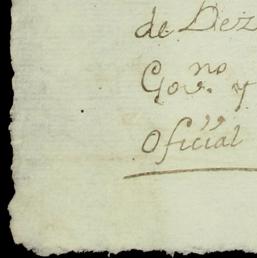 de Dez
Gov.no y
Oficial